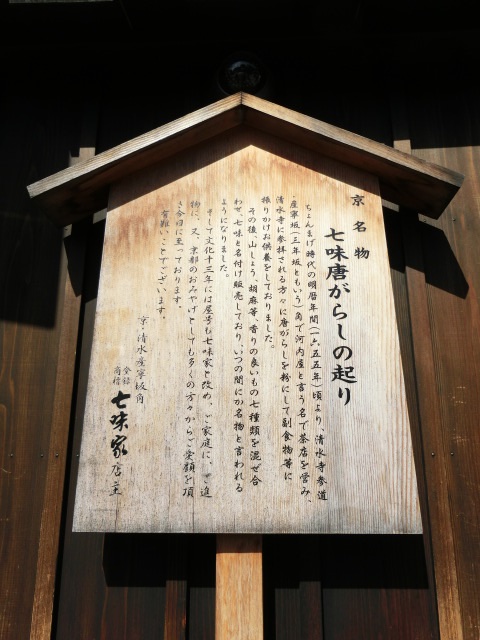 京名物
七味唐がらしの起り
ちょんまげ時代の明暦年間(一六五五年)頃より、清水寺参道
産寧坂(三年坂ともいう)角で河内屋と言う名で茶店を営み、
清水寺に参拝される方々に唐がらしを粉にして副食物等に
振りかけお供養をしておりました。
その後、山しょう、胡麻等、香りの良いもの七種類を混ぜ合
わせ、七味と名付け販売しており、いつの間にか名物と言われる
ようになりました。
そして文化十三年には屋号も七味家と改め、ご家庭に、ご進
物に、又、京都のおみやげとしても多くの方々からご愛顧を頂
き今日に至っております。
有難いことでございます。
京、清水産寧坂角
登録
商標
七味家
店主